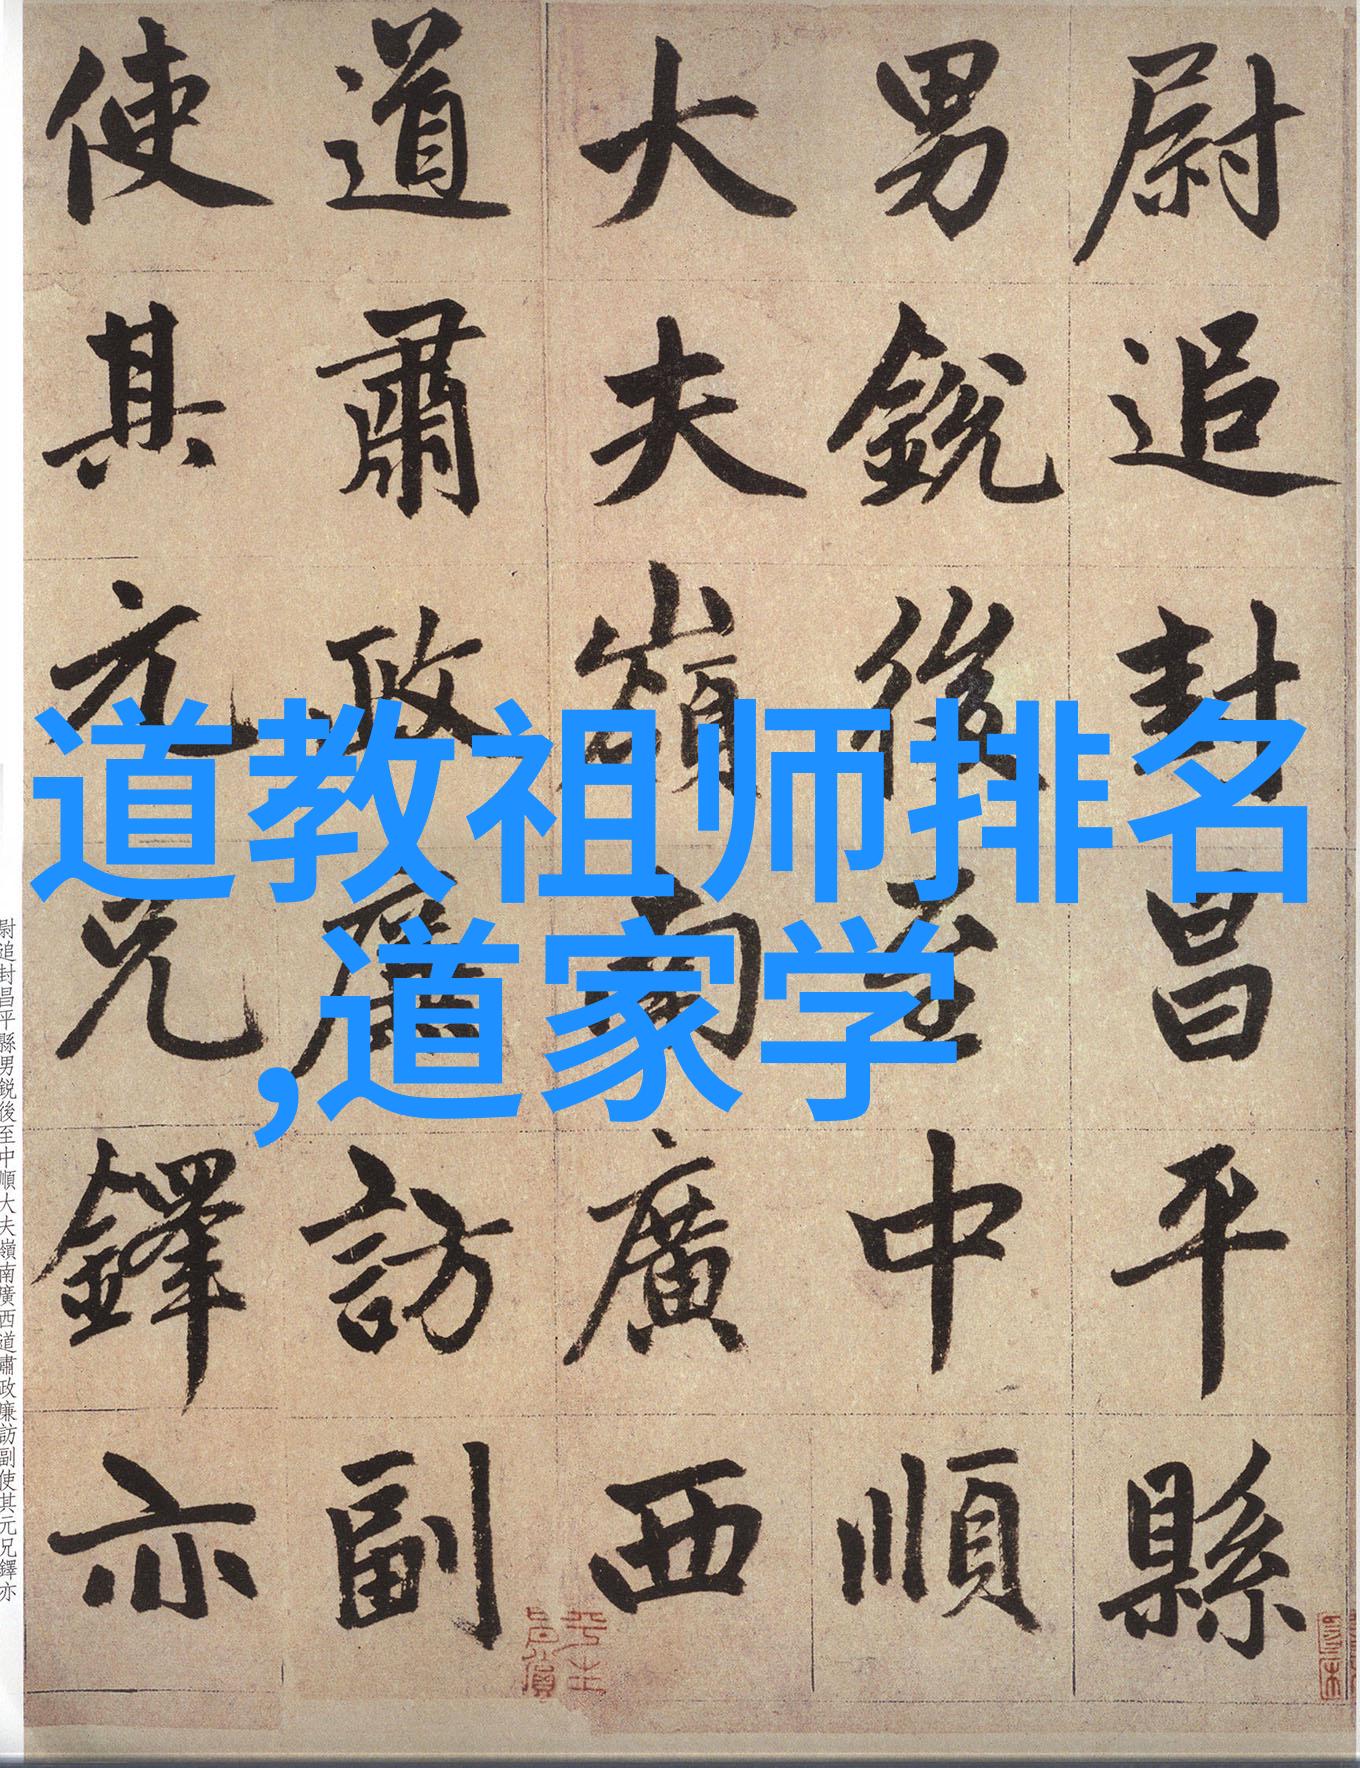 尉追封昌平縣
男銳後至中順
大夫嶺南廣西
道肅政廉訪副
使其元兄鐸亦
道教祖师排名
,道家学
尉追封昌平縣男銳後至中順大夫嶺南廣西道肅政廉訪副使其元兄鐸亦